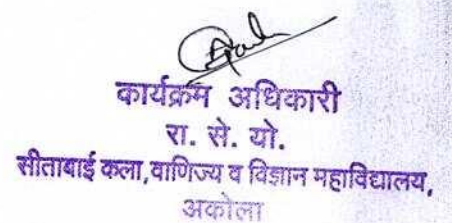 कार्यक्रम अधिकारी
रा. से. यो.
सीताबाई कला,वाणिज्य व विज्ञान महाविद्यालय,
अकोला